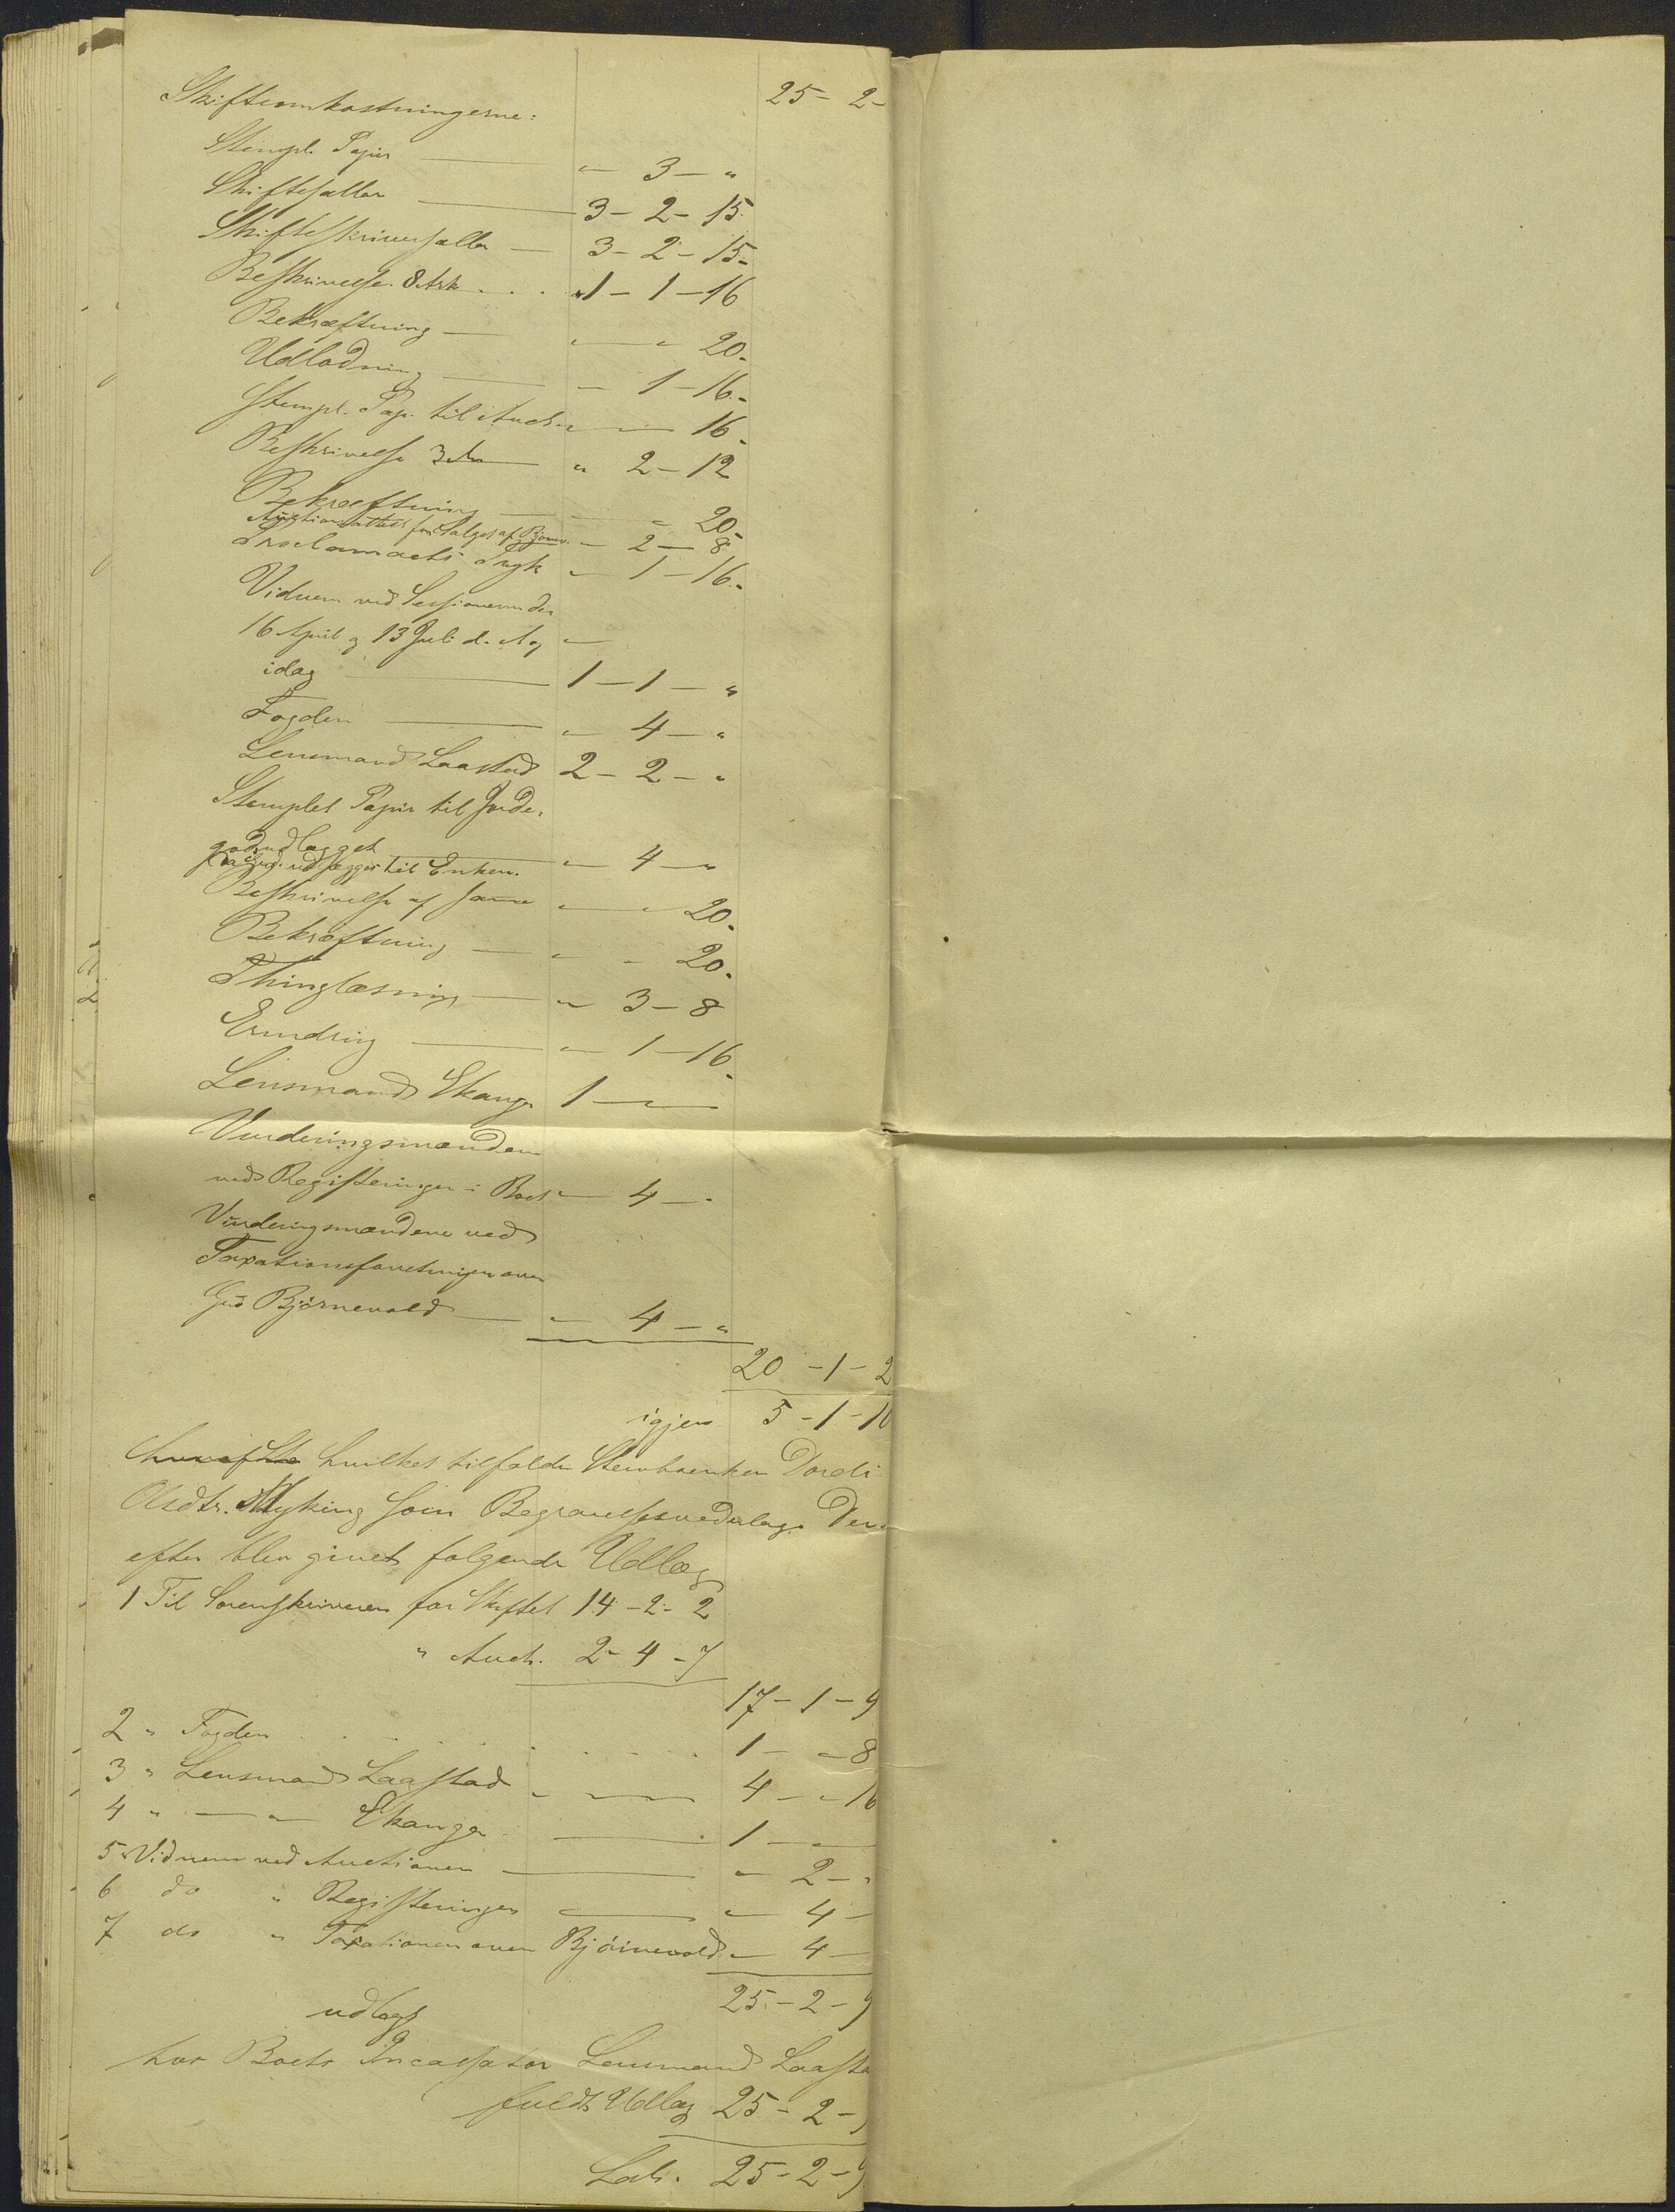 25 - 2 -
Skifteomkostningerne:
Stempl. Papir — " - 3 - "
Skiftesaller — 3 - 2 - 15
Skifteskriversaller — 3 - 2 - 15 -
Beskrivelse 8 Ark . . . 1 - 1 - 16
Bekræftning — " - " 20 -
Udlodning — " - 1 - 16 -
Stempl. Pap. til Auct. " - " 16 -
Beskrivelse 3 Ark — " 2 - 12
Bekræftning — - - 20 -
for Salget af Bjørnev. - 2 - 8
Proclamaets Tryk - 1 - 16 -
Vidnern ved Sessionerne den
16 April og 13 Juli d. A. og -
idag — 1 - 1 - "
Fogden — " - 4 - "
Lensmand Laastad 2 - 2 - "
Stemplet Papir til Jorde-
godsudlægget
udlægget til Enken. — " - 4 - "
Beskrivelse af samme " - " 20 -
Bekræftning — " - 20 -
Thinglæsning — " 3 - 8
Erindring — " - 1 - 16 -
Lensmand Ekanger 1 - " -
Vurderingsmændene
ved Registeringen i Boet " - 4 - "
Vurderingsmændene ved
Taxationsforretningen over
Gd Bjørnevold — " - 4 - "
20 - 1 - 2
igjen 5 - 1 - 10
hvilket tilfalder Sterboenken Dordi
Olsdtr. Myking som Begravelsesvederlag. Der-
efter blev givet følgende Udlæg
1 Til Sorenskriveren for Skiftet 14 - 2 - 2
" Auct. 2 - 4 - 7
17 - 1 - 9
2 " Fogden . . . . . . . 1 - " 8
3 " Lensmand Laastad - — 4 - " 16
4 " — " — Ekanger — 1 - " -
5 " Vidnern ved Auctionen — " 2 - "
6 do " Registeringen — " 4 -
7 do " Taxationen over Bjørnevold " 4 -
25 - 2 - 9
udlagt
hos Boets Incassator Lensmand Laasta
fuldt Udlæg 25 - 2 - 9
Lats. 25 - 2 - 9